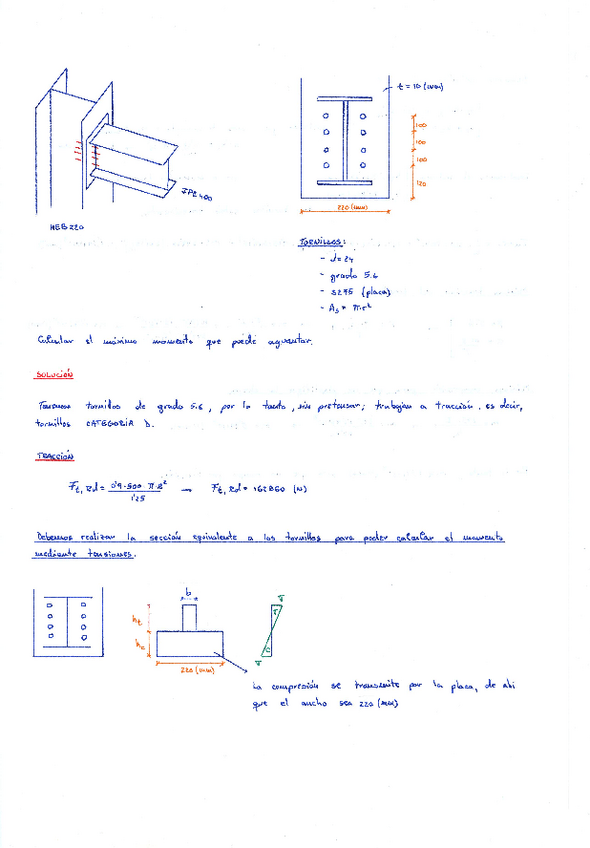 t = 10 (mm)
100
100
100
120
IPE 400
220 (mm)
HEB 220
TORNILLOS:
- d = 24
- grado 5.6
- S275 (placa)
- As = π·r²
Calcular el máximo momento que puede aguantar.
SOLUCIÓN
Tenemos tornillos de grado 5.6, por lo tanto, sin pretensar; trabajan a tracción, es decir,
tornillos CATEGORÍA D.
TRACCIÓN
Ft,Rd = 0'9·500·π·12² / 1'25 → Ft,Rd = 162860 (N)
Debemos realizar la sección equivalente a los tornillos para poder calcular el momento
mediante tensiones.
b
ht
hc
220 (mm)
σ
T
C
σ
La compresión se transmite por la placa, de ahi
que el ancho sea 220 (mm)